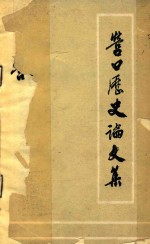 营口历史论文集